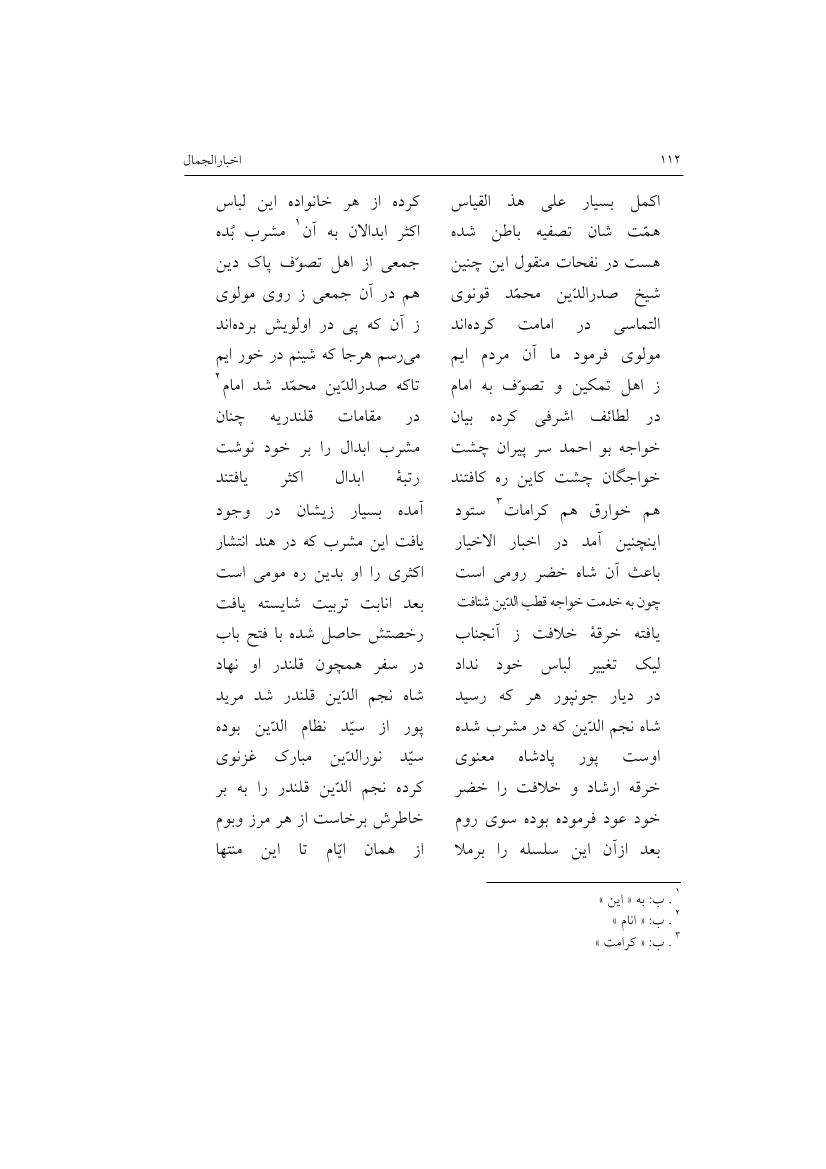 ۱۱۲ اخبارالجمال
اکمل بسیار علی هذ القیاس کرده از هر خانواده این لباس
همّت شان تصفیه باطن شده اکثر ابدالان به آن۱ مشرب بُده
هست در نفحات منقول این چنین جمعی از اهل تصوّف پاک دین
شیخ صدرالدّین محمّد قونوی هم در آن جمعی ز روی مولوی
التماسی در امامت کرده‌اند ز آن که پی در اولویش برده‌اند
مولوی فرمود ما آن مردم ایم می‌رسم هرجا که شینم در خور ایم
ز اهل تمکین و تصوّف به امام تاکه صدرالدّین محمّد شد امام۲
در لطائف اشرفی کرده بیان در مقامات قلندریه چنان
خواجه بو احمد سر پیران چشت مشرب ابدال را بر خود نوشت
خواجگان چشت کاین ره کافتند رتبۀ ابدال اکثر یافتند
هم خوارق هم کرامات۳ ستود آمده بسیار زیشان در وجود
اینچنین آمد در اخبار الاخیار یافت این مشرب که در هند انتشار
باعث آن شاه خضر رومی است اکثری را او بدین ره مومی است
چون به خدمت خواجه قطب الدّین شتافت بعد انابت تربیت شایسته یافت
یافته خرقۀ خلافت ز آنجناب رخصتش حاصل شده با فتح باب
لیک تغییر لباس خود نداد در سفر همچون قلندر او نهاد
در دیار جونپور هر که رسید شاه نجم الدّین قلندر شد مرید
شاه نجم الدّین که در مشرب شده پور از سیّد نظام الدّین بوده
اوست پور پادشاه معنوی سیّد نورالدّین مبارک غزنوی
خرقه ارشاد و خلافت را خضر کرده نجم الدّین قلندر را به بر
خود عود فرموده بوده سوی روم خاطرش برخاست از هر مرز وبوم
بعد ازآن این سلسله را برملا از همان ایّام تا این منتها
۱ . ب: به « این »
۲ . ب: « انام »
۳ . ب: « کرامت »